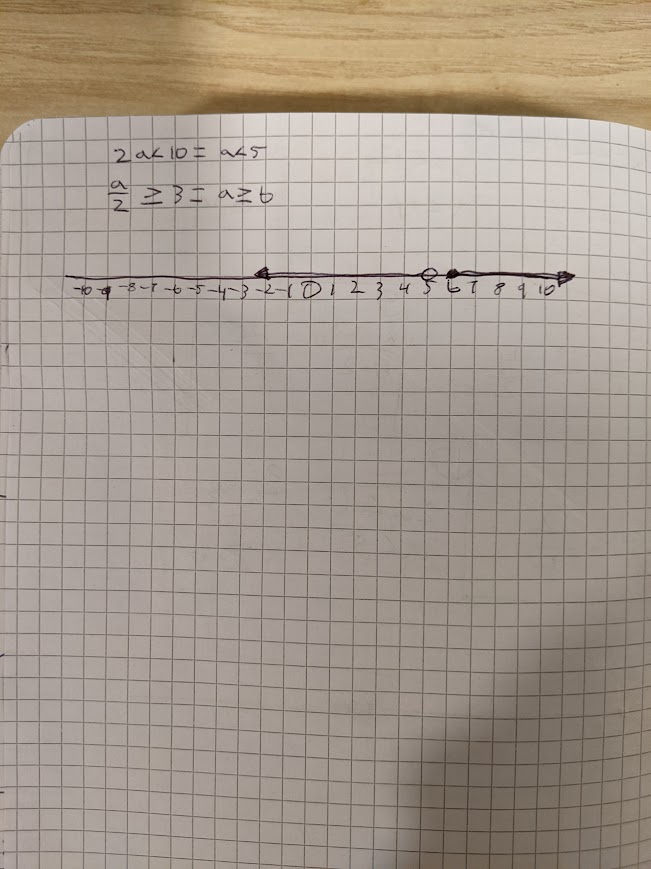 2a<10= a<5
a/2 ≥ 3= a≥6
-10 -9 -8 -7 -6 -5 -4 -3 -2 -1 0 1 2 3 4 5 6 7 8 9 10